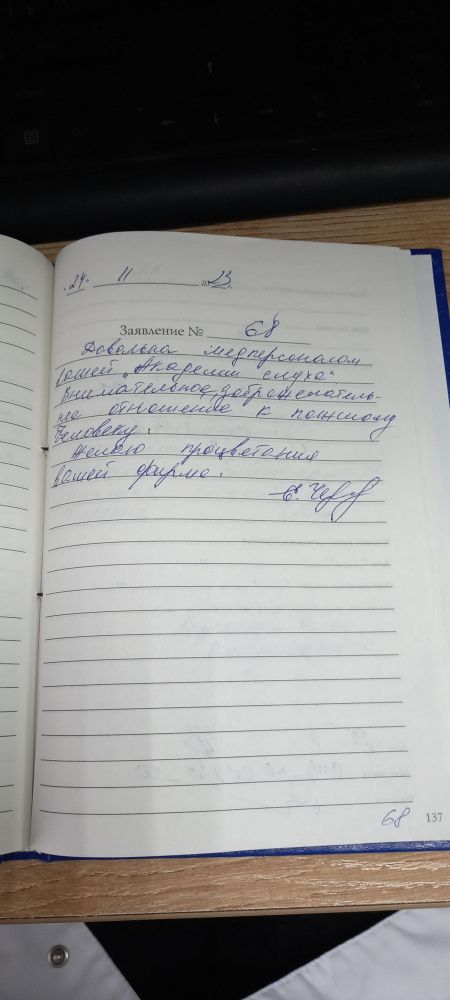 "24" 11 2023 г.
Заявление № 68
Довольна медперсоналом
вашей „Академии слуха"
Внимательное, доброжелатель-
ное отношение к пожилому
человеку.
Желаю процветания
вашей фирме.
68 137